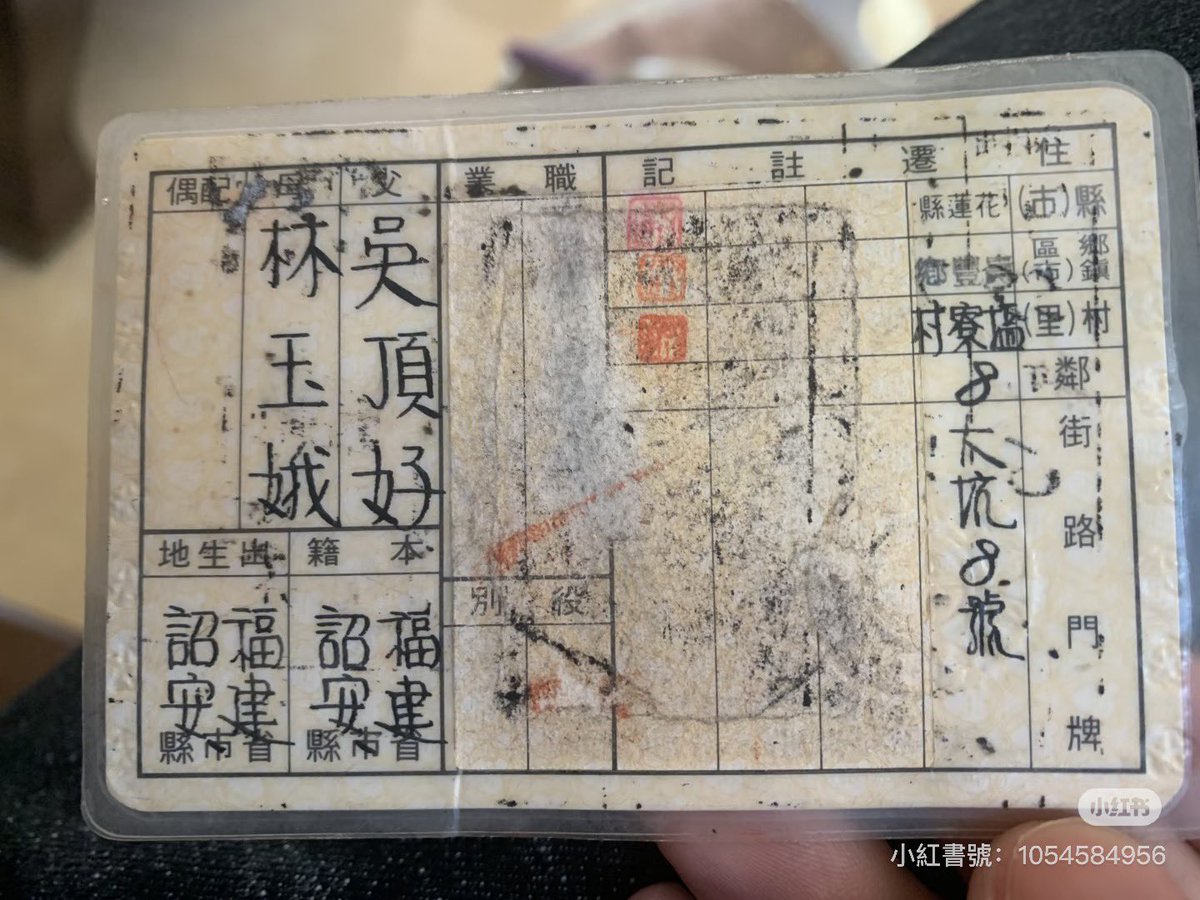 住遷註記
縣(市)
花蓮縣
鄉鎮(區市)
壽豐鄉
村(里)
鹽寮村
鄰
8
街路門牌
大坑8號
職業
役別
父
吳頂好
母
林玉娥
配偶
本籍
福建省
詔安縣市
出生地
福建省
詔安縣市
小红书
小紅書號：1054584956